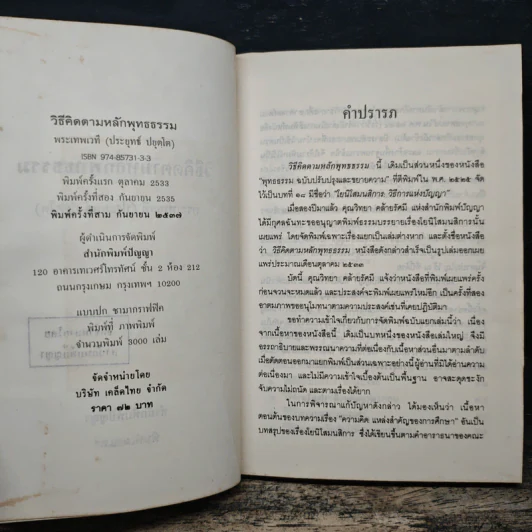 วิธีคิดตามหลักพุทธธรรม
พระเทพเวที (ประยุทธ์ ปยุตฺโต)
ISBN 974-85731-3-3
พิมพ์ครั้งแรก ตุลาคม 2533
พิมพ์ครั้งที่สอง กันยายน 2535
พิมพ์ครั้งที่สาม กันยายน ๒๕๓๗
ผู้ดำเนินการจัดพิมพ์
สำนักพิมพ์ปัญญา
120 อาคารเทเวศร์ไทรทัศน์ ชั้น 2 ห้อง 212
ถนนกรุงเกษม กรุงเทพฯ 10200
แบบปก ชามากราฟฟิค
พิมพ์ที่ ภาพพิมพ์
จำนวนพิมพ์ 3000 เล่ม
จัดจำหน่ายโดย
บริษัท เคล็ดไทย จำกัด
ราคา ๗๒ บาท
คำปรารภ
วิธีคิดตามหลักพุทธธรรม นี้ เดิมเป็นส่วนหนึ่งของหนังสือ
"พุทธธรรม ฉบับปรับปรุงและขยายความ" ที่ตีพิมพ์ใน พ.ศ. ๒๕๒๕ จัด
ไว้เป็นบทที่ ๑๘ มีชื่อว่า "โยนิโสมนสิการ: วิธีการแห่งปัญญา"
เมื่อสองปีมาแล้ว คุณวิทยา คล้ายรัศมี แห่งสำนักพิมพ์ปัญญา
ได้มีกุศลฉันทะขออนุญาตพิมพ์ธรรมบรรยายเรื่องโยนิโสมนสิการนั้น
เผยแพร่ โดยจัดพิมพ์เฉพาะเรื่องแยกเป็นเล่มต่างหาก และตั้งชื่อหนังสือ
ว่า วิธีคิดตามหลักพุทธธรรม หนังสือดังกล่าวสำเร็จเป็นรูปเล่มออกเผย
แพร่ประมาณเดือนตุลาคม ๒๕๓๓
บัดนี้ คุณวิทยา คล้ายรัศมี แจ้งว่าหนังสือที่พิมพ์เผยแพร่ครั้ง
ก่อนจวนจะหมดแล้ว และประสงค์จะพิมพ์เผยแพร่ใหม่อีก เป็นครั้งที่สอง
อาตมภาพขออนุโมทนาตามความประสงค์เช่นที่เคยปฏิบัติมา
ขอทำความเข้าใจเกี่ยวกับการจัดพิมพ์ฉบับแยกเล่มนี้ว่า เนื่อง
จากเนื้อหาของหนังสือนี้ เดิมเป็นบทหนึ่งของหนังสือเล่มใหญ่ จึงมี
อรรถาธิบายและพรรณนาความที่ต่อเนื่องกับเนื้อหาส่วนอื่นมาตามลำดับ
เมื่อตัดตอนออกมาแยกพิมพ์เป็นส่วนเฉพาะอย่างนี้ผู้อ่านที่มิได้อ่านความ
ต่อเนื่องมา และไม่มีความเข้าใจเบื้องต้นเป็นพื้นฐาน อาจสะดุดชะงัก
จับความไม่ถนัด และตามเรื่องได้ยาก
ในการพิจารณาแก้ปัญหาดังกล่าว ได้มองเห็นว่า เนื้อหา
ตอนต้นของบทความเรื่อง "ความคิด: แหล่งสำคัญของการศึกษา" อันเป็น
บทสรุปของเรื่องโยนิโสมนสิการ ซึ่งได้เขียนขึ้นตามคำอาราธนาของคณะ